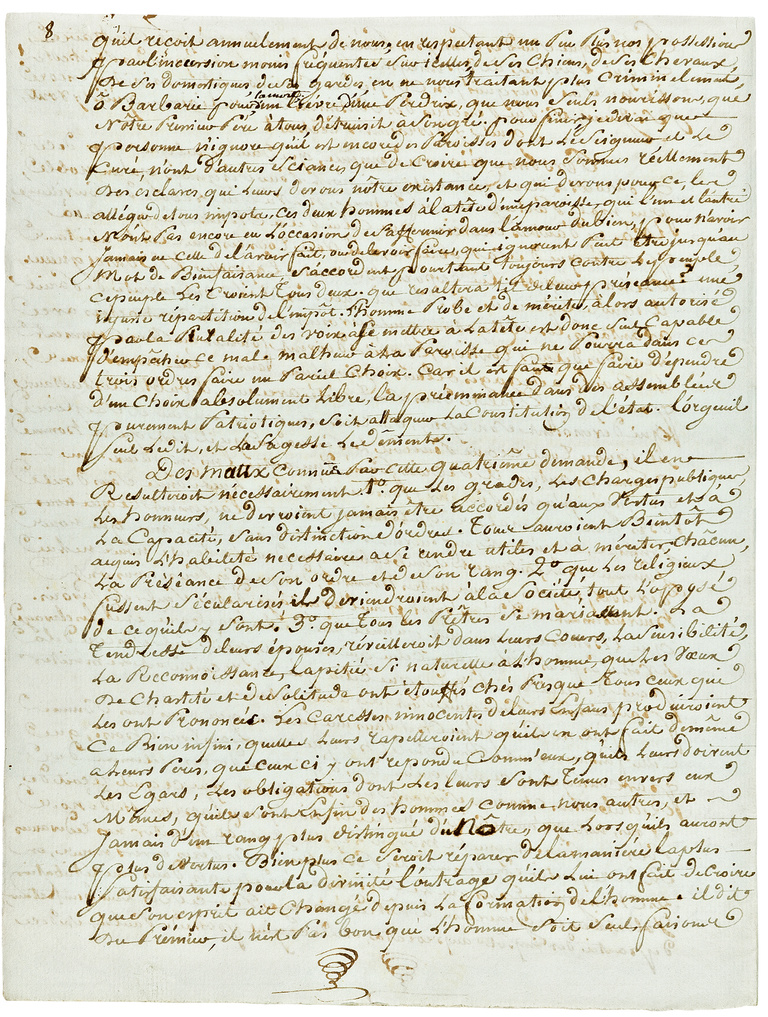 8
qu'il reçoit annuellement de nous, en respectant un Peu Plus nos possessions
par l'incersion moins fréquentée sur icelles, de ses Chiens, de ses Chevaux,
De ses domestiques de ses gardes, en ne nous traitant plus Criminellement,
ô Barbarie pour la mort d'un Lièvre d'une Perdrix, que nous seuls nourrissons, que
Nôtre Prémier Père à tous, détruisit à son gré. pour finir je dirai que
personne n'ignore qu'il est encore des Paroisses dont Le Seigneur et Le
Curé, n'ont d'autres Sciances que de Croire que nous sommes réellement
Des esclaves, qui Leurs devons nôtre existance, et qui devons pour ce, les
alléger de tous impots. Ces deux hommes à la tête d'une paroisse, qui l'un et l'autre
N'ont Pas encore eu L'occasion de s'affermir dans l'amour du bien, pour n'avoir
Jamais eu celle de l'avoir fait, ou de le voir faire, qui ignorent Peut être jusqu'au
Mot de Bienfaisance, s'accordent pourtant toujours Contre Le peuple
ce peuple Les Croient Tous deux. que resultera t'il de leur préseance? une
injuste répartition de l'impôt. L'homme Probe et de mérite, alors autorisé
par la Pluralité des voix à se mettre à La tête est donc seul Capable
d'empêcher ce male malheur à La Paroisse qui ne Pourra dans ces
trois ordres faire un Pareil Choix. Car il est faux que faire dépendre
d'un Choix absolument Libre, la prééminance dans des assemblées
purement Patriotiques, soit attaquer La Constitution de l'état. L'orgeuil
seul Le dit, et La sagesse Le dément.
Des maux connus Par Cette quatrième demande, il en
Resulteroit nécessairement 1.º que Les grades, Les Charges publiques,
Les honneurs, ne devroient jamais être accordés qu'aux Vertus et à
La Capacité, sans distinction d'ordres. Tous auroient Beintôt
acquis L'habileté nécessaire à se rendre utiles et à mériter, Chacun,
La Préséance de son ordre et de son rang. 2.º que Les religieux
fussent sécularisés il deviendroient à la Société, tout L'opposé
de ce qu'ils y sont. 3.º que Tous Les Prêtres se mariassent. La
Tendresse de leurs épouses, réveilleroit dans Leurs Coeurs, La sensibilité,
La Reconnoissance, la pitié si naturelle à L'homme, que Les Voeux
De Chasteté et de solitude ont étouffés chés Presque Tous ceux que
Les ont Prononcés. Les Caresses innocentes de leurs Enfans produiroient
Ce Bien infini, qu'elles Leurs rappelleroient qu'ils en ont fait de même
à Leurs Peres, que Ceux ci y ont repondu Comm'eux, qu'ils Leurs doivent
Les Egars, Les obligations dont Les leurs sont Tenus envers eux
Mêmes, qu'ils sont Enfin des hommes Comme nous autres, et
Jamais d'un rang plus distingué du Nôtre, que Lors qu'ils auront
plus de Vertus. Bien plus ce seroit réparer de la manière la plus
satisfaisante pour la divinité L'outrage qu'ils Lui ont fait de Croire
que son esprit ait Changé depuis La formation de L'homme. il dit
Du Prémier, il n'est Pas bon que L'homme soit seul, faisons